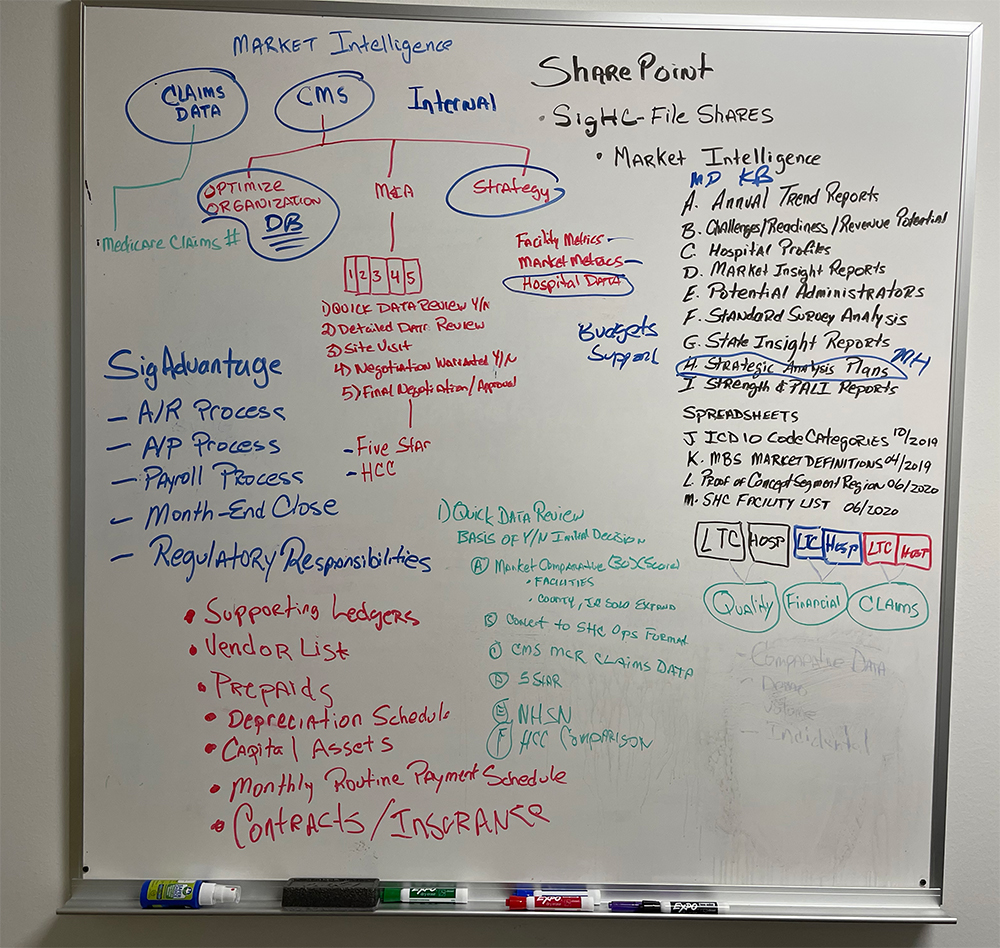 MARKET Intelligence
CLAIMS
DATA
CMS
Internal
OPTIMIZE
ORGANIZATION
DB
M&A
Strategy
Medicare Claims #
1 2 3 4 5
1) QUICK DATA REVIEW Y/N
2) Detailed Data Review
3) Site Visit
4) Negotiation Warranted Y/N
5) Final Negotiation/Approval
- Five Star
- HCC
Facility Metrics -
Market Metrics -
Hospital DATA
Budgets
Support
SharePoint
• SigHC-File SHARES
• Market Intelligence
MD KB
A. Annual Trend Reports
B. Challenges/Readiness/Revenue Potential
C. Hospital Profiles
D. Market Insight Reports
E. Potential Administrators
F. Standard Survey Analysis
G. State Insight Reports
H. Strategic Analysis Plans MH
I Strength & PALI Reports
SPREADSHEETS
J ICD10 Code Categories 10/2019
K. MBS MARKET DEFINITIONS 04/2019
L. Proof of Concept Segment Region 06/2020
M. SHC FACILITY LIST 06/2020
LTC HOSP LTC HOSP LTC HOSP
Quality Financial CLAIMS
Comparative Data
- Demo
- Volume
- Incidental
SigAdvantage
- A/R Process
- A/P Process
- Payroll Process
- Month-End Close
- Regulatory Responsibilities
• Supporting Ledgers
• Vendor List
• Prepaids
• Depreciation Schedule
• Capital Assets
• Monthly Routine Payment Schedule
• Contracts/Insurance
1) QUICK DATA REVIEW
BASIS OF Y/N Initial Decision
A Market Comparative
• FACILITIES
• COUNTY,
Convert to SHC Ops Format
CMS MCR CLAIMS DATA
D 5 STAR
E NHSN
F HCC COMPARISON
EXPO
EXPO
EXPO